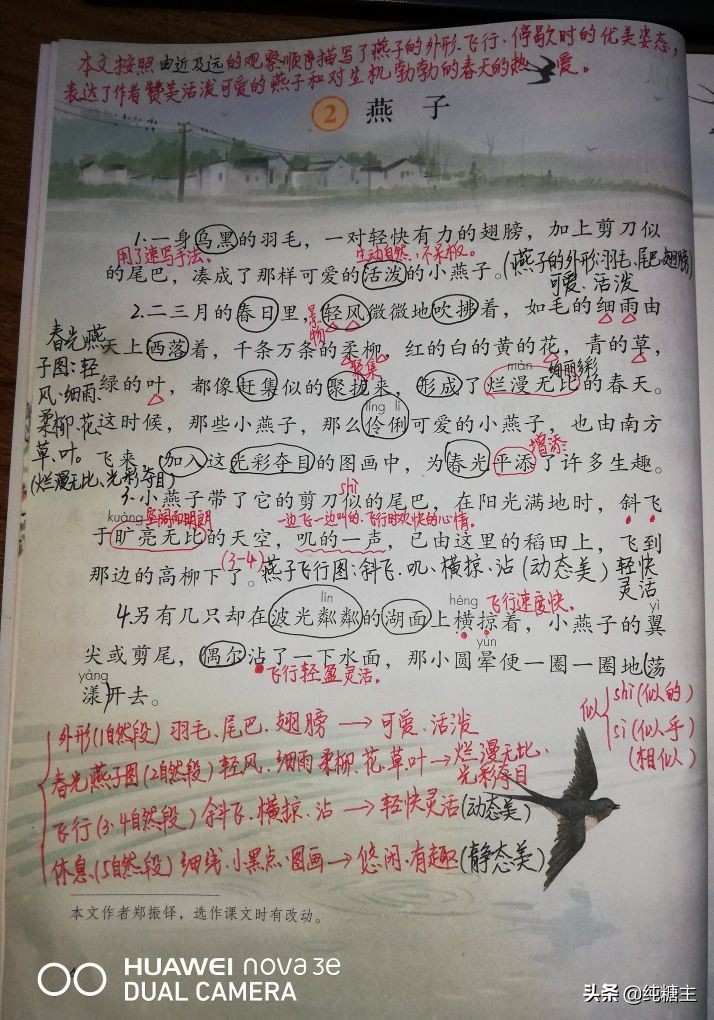 本文按照由近及远的观察顺序描写了燕子的外形、飞行、停歇时的优美姿态,
表达了作者赞美活泼可爱的燕子和对生机勃勃的春天的热爱。
2 燕子
1.一身乌黑的羽毛,一对轻快有力的翅膀,加上剪刀似
用了速写手法。 生动自然,不呆板。
的尾巴,凑成了那样可爱的活泼的小燕子。(燕子的外形:羽毛、尾巴、翅膀)
可爱、活泼
2.二三月的春日里,轻风微微地吹拂着,如毛的细雨由
景物
春光燕子图:轻风、细雨、柔柳、花、草、叶。
(烂漫无比、光彩夺目)
天上洒落着,千条万条的柔柳,红的白的黄的花,青的草,
聚集 màn 绚丽多彩
绿的叶,都像赶集似的聚拢来,形成了烂漫无比的春天。
líng lì
这时候,那些小燕子,那么伶俐可爱的小燕子,也由南方
增添
飞来,加入这光彩夺目的图画中,为春光平添了许多生趣。
shì
3.小燕子带了它的剪刀似的尾巴,在阳光满地时,斜飞
kuàng 空阔而明朗 一边飞一边叫的、飞行时欢快的心情。
于旷亮无比的天空,叽的一声,已由这里的稻田上,飞到
(3-4)
那边的高柳下了。燕子飞行图:斜飞、叽、横掠、沾(动态美)轻快
灵活
lín héng 飞行速度快。 yì
4.另有几只却在波光粼粼的湖面上横掠着,小燕子的翼
yùn
尖或剪尾,偶尔沾了一下水面,那小圆晕便一圈一圈地荡
yàng 飞行轻盈灵活。
漾开去。
似 shì(似的)
sì(似乎)
(相似)
外形(1自然段)羽毛、尾巴、翅膀→可爱、活泼
春光燕子图(2自然段)轻风、细雨、柔柳、花、草、叶→烂漫无比、
光彩夺目
飞行(3、4自然段)斜飞、横掠、沾→轻快灵活(动态美)
休息(5自然段)细线、小黑点、图画→悠闲、有趣(静态美)
本文作者郑振铎,选作课文时有改动。
HUAWEI nova 3e
DUAL CAMERA
头条 @纯糖主